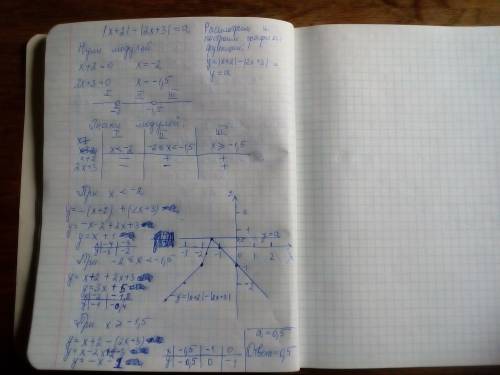 |x+2| - |2x+3| = a
Нули модулей
x+2=0 x=-2
2x+3=0 x=-1,5
Рассмотрим и
построим графики
функций:
y=|x+2|-|2x+3|
y=a
I II III
-2 -1,5
Знаки модулей:
I II III
x<-2 -2≤x<-1,5 x≥-1,5
x+2 - + +
2x+3 - - +
При x<-2
y=-(x+2)+(2x+3)
y=-x-2+2x+3
y=x+1
При -2≤x<-1,5
y=x+2+2x+3
y=3x+5
x -2
y -1
y=|x+2|-|2x+3|
y=a
При x≥-1,5
y=x+2-(2x+3)
y=x-2x+2-3
y=-x-1
x -1,5 -1 0
y 0,5 0 -1
a=0,5
Ответ: 0,5